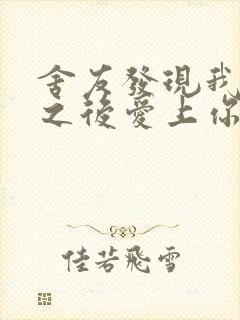 舍友發現我
之後愛上你
佳若飛雪